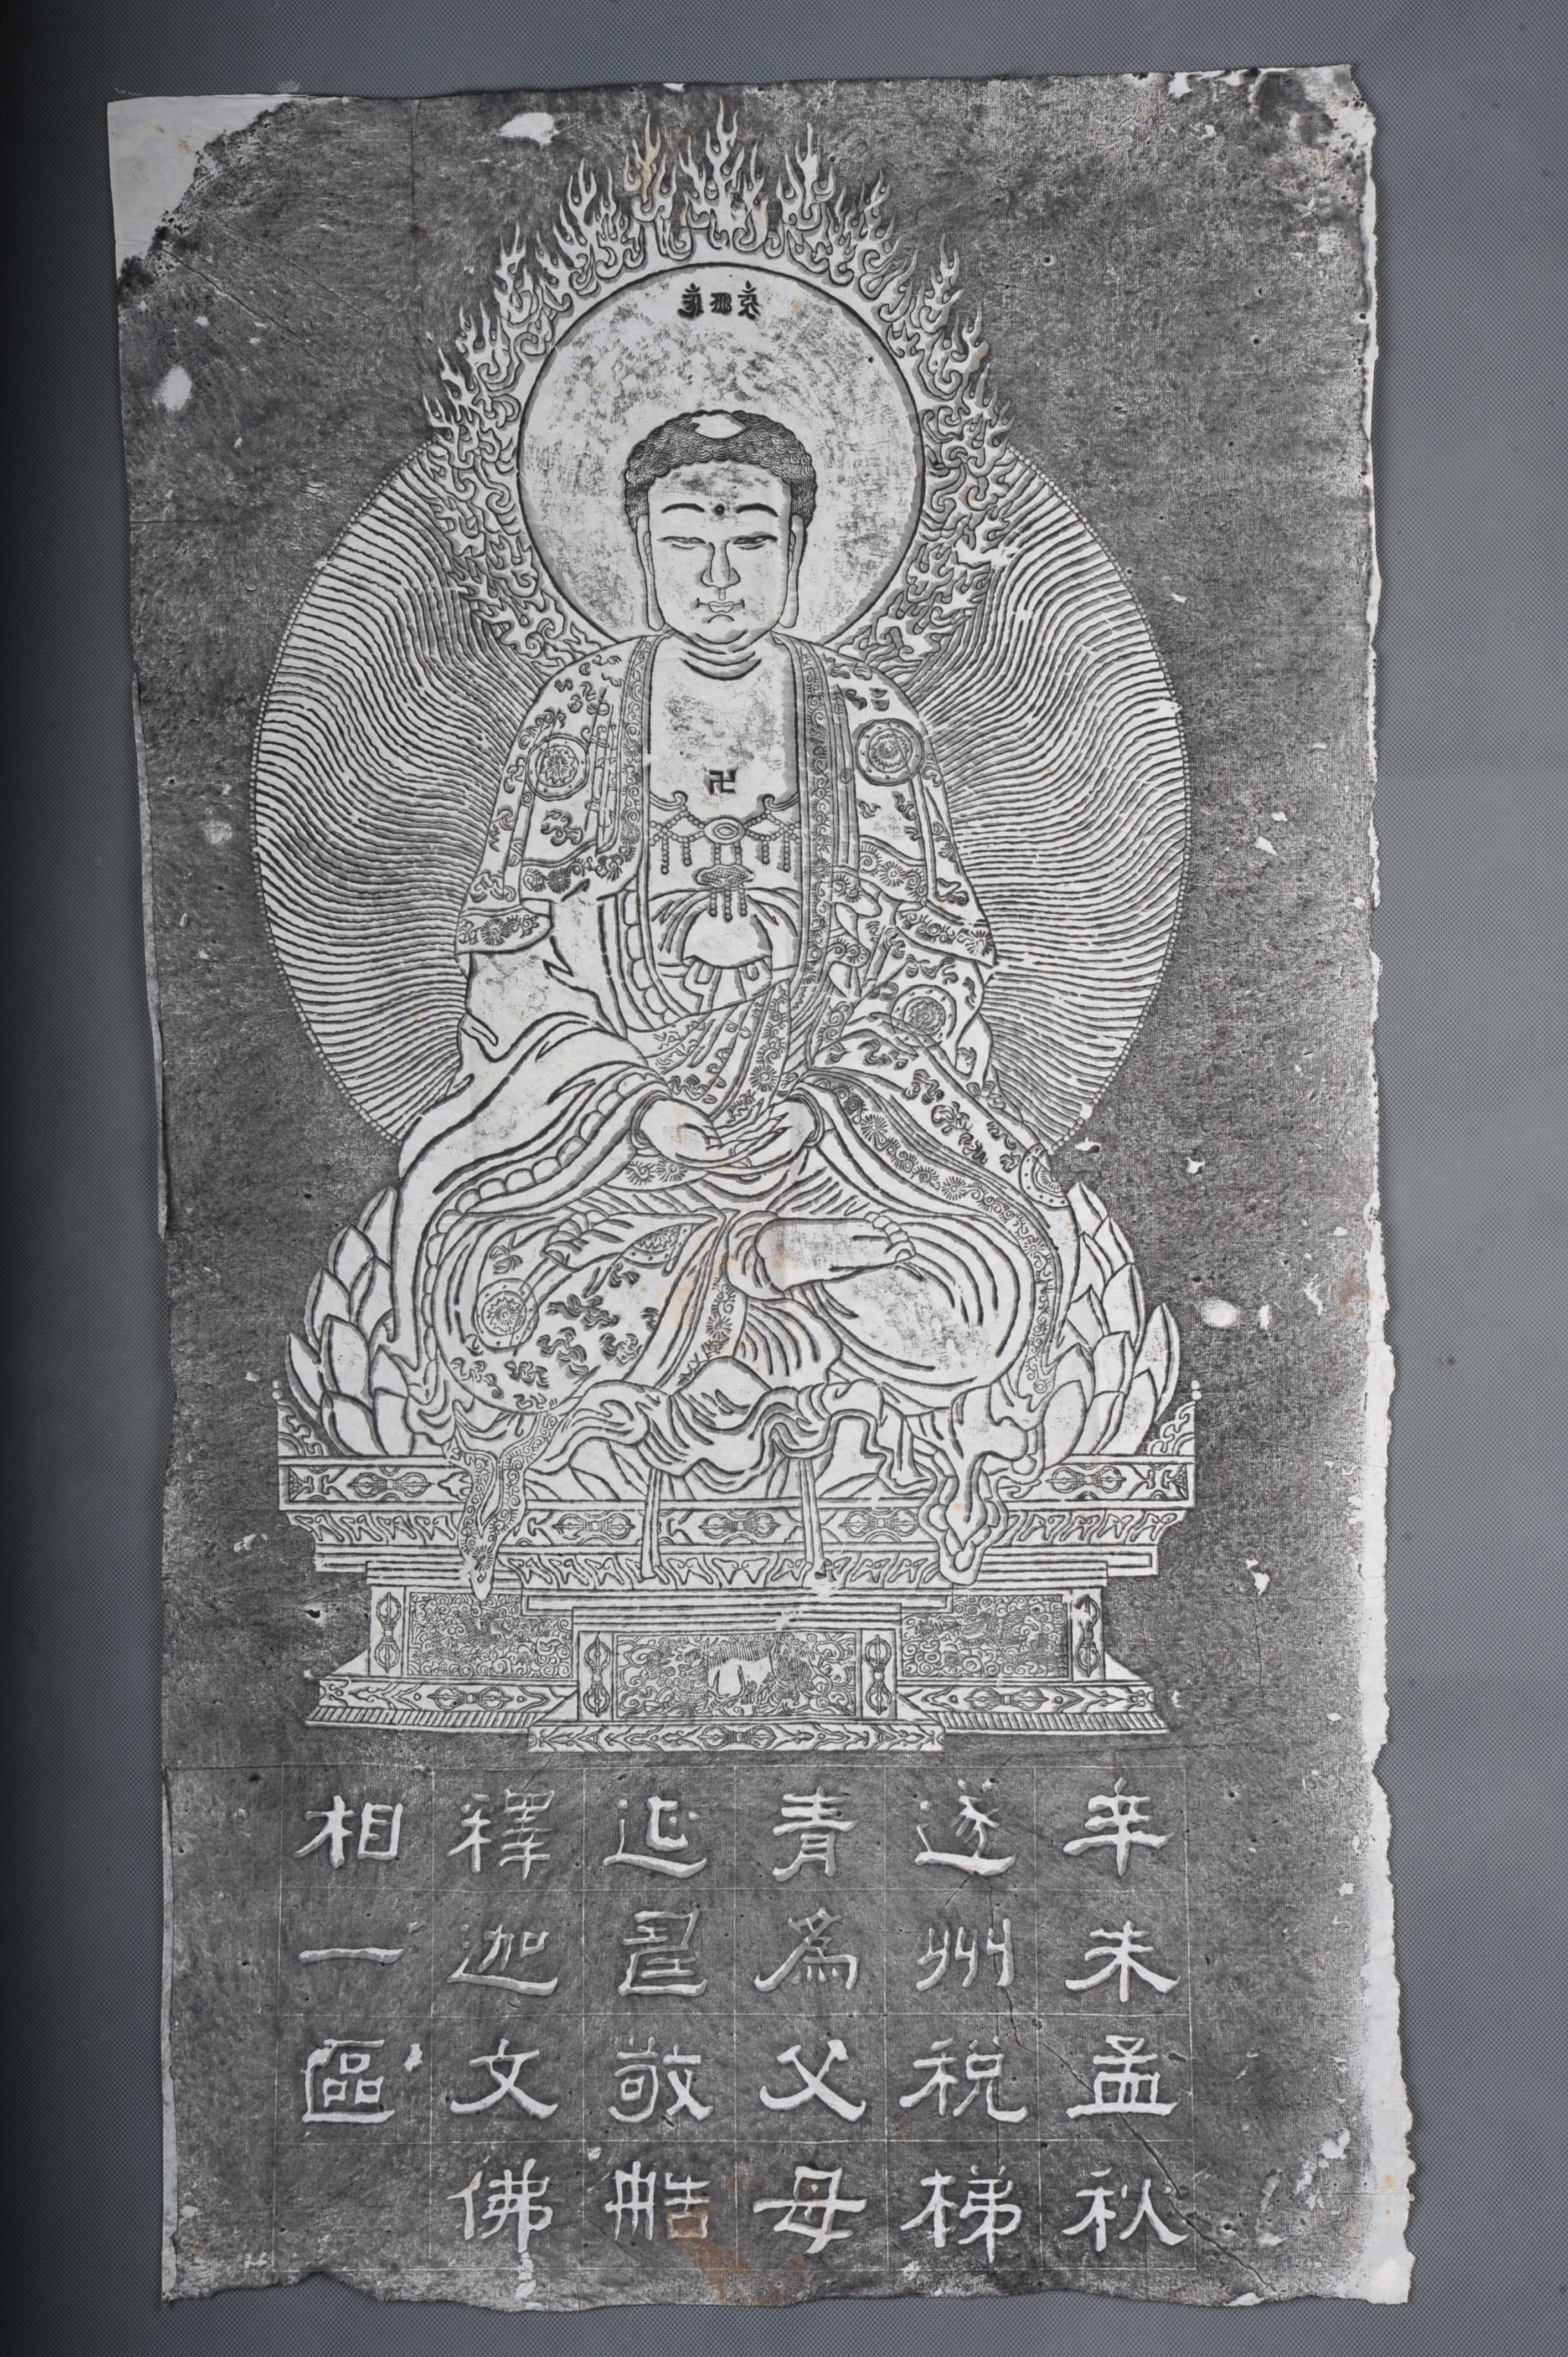 卍
辛未孟秋
遂州税梯
青為父母
延敬
釋迦文佛
相一區